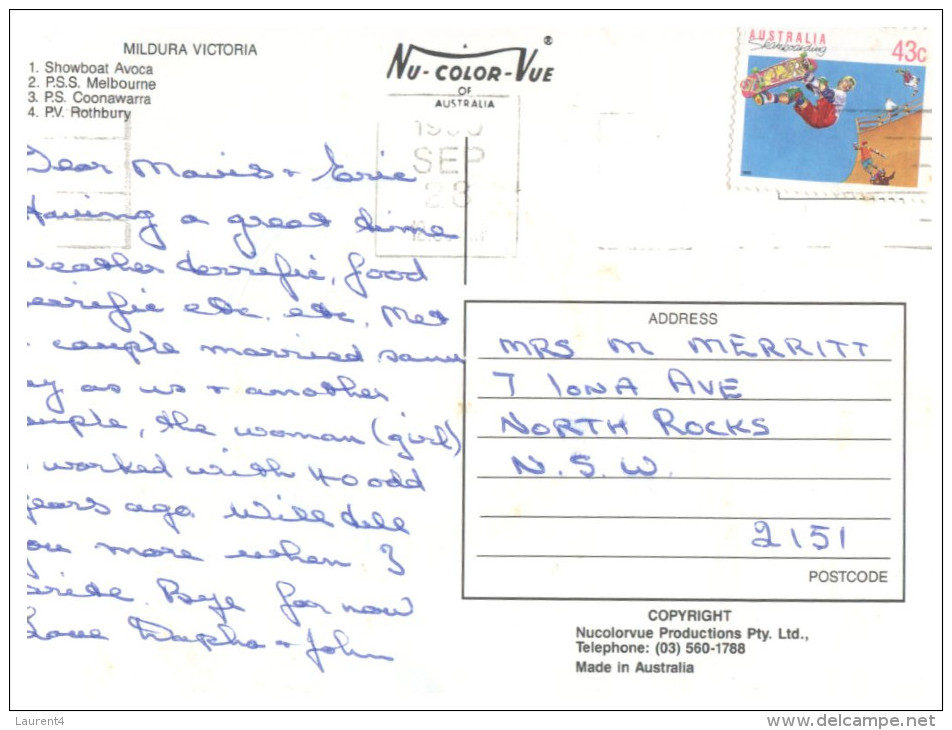 MILDURA VICTORIA
1. Showboat Avoca
2. P.S.S. Melbourne
3. P.S. Coonawarra
4. P.V. Rothbury
NU-COLOR-VUE ®
OF
AUSTRALIA
AUSTRALIA
Skateboarding
43c
SEP
28
Dear Mavis + Eric
Having a great time
weather terrific, food
terrific etc. etc. Met
couple married same
ay as us + another
ouple, the woman (girl)
worked with 40 odd
years ago. Will tell
you more when I
arive. Bye for now
Love Daphne + John
ADDRESS
MRS M MERRITT
7 IONA AVE
NORTH ROCKS
N.S.W.
2151
POSTCODE
COPYRIGHT
Nucolorvue Productions Pty. Ltd.,
Telephone: (03) 560-1788
Made in Australia
Laurent4
www.delcampe.net